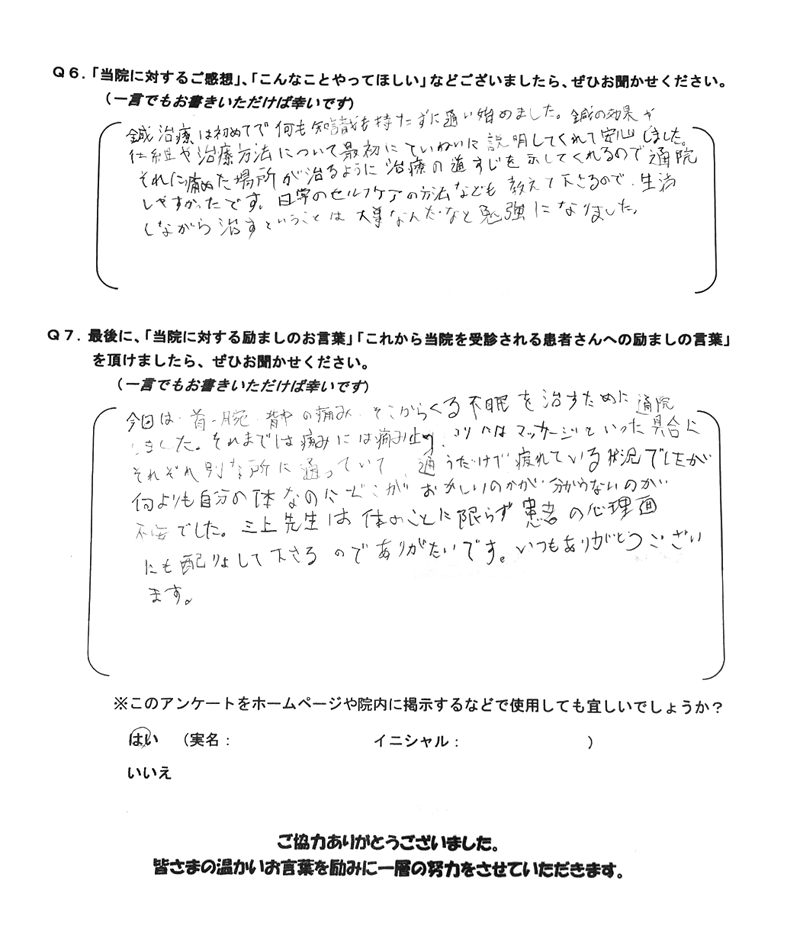 Q6.「当院に対するご感想」、「こんなことやってほしい」などございましたら、ぜひお聞かせください。
(一言でもお書きいただけば幸いです)
鍼治療は初めてで何も知識を持たずに通い始めました。鍼の効果や
仕組や治療方法について最初にていねいに説明してくれて安心しました。
それに痛めた場所が治るように治療の道すじを示してくれるので通院
しやすかったです。日常のセルフケアの方法なども教えて下さるので、生活
しながら治すということは大事なんだなと勉強になりました。
Q7.最後に、「当院に対する励ましのお言葉」「これから当院を受診される患者さんへの励ましの言葉」
を頂けましたら、ぜひお聞かせください。
(一言でもお書きいただけば幸いです)
今回は首・腕・背中の痛み、そこからくる不眠を治すために通院
しました。それまでは痛みには痛み止め、コリにはマッサージといった具合に
それぞれ別な所に通っていて、通うだけで疲れている状況でしたが
何よりも自分の体なのにどこがおかしいのかが分からないのが
不安でした。三上先生は体のことに限らず患者の心理面
にも配りょして下さるのでありがたいです。いつもありがとうござい
ます。
※このアンケートをホームページや院内に掲示するなどで使用しても宜しいでしょうか?
はい (実名: イニシャル: )
いいえ
ご協力ありがとうございました。
皆さまの温かいお言葉を励みに一層の努力をさせていただきます。